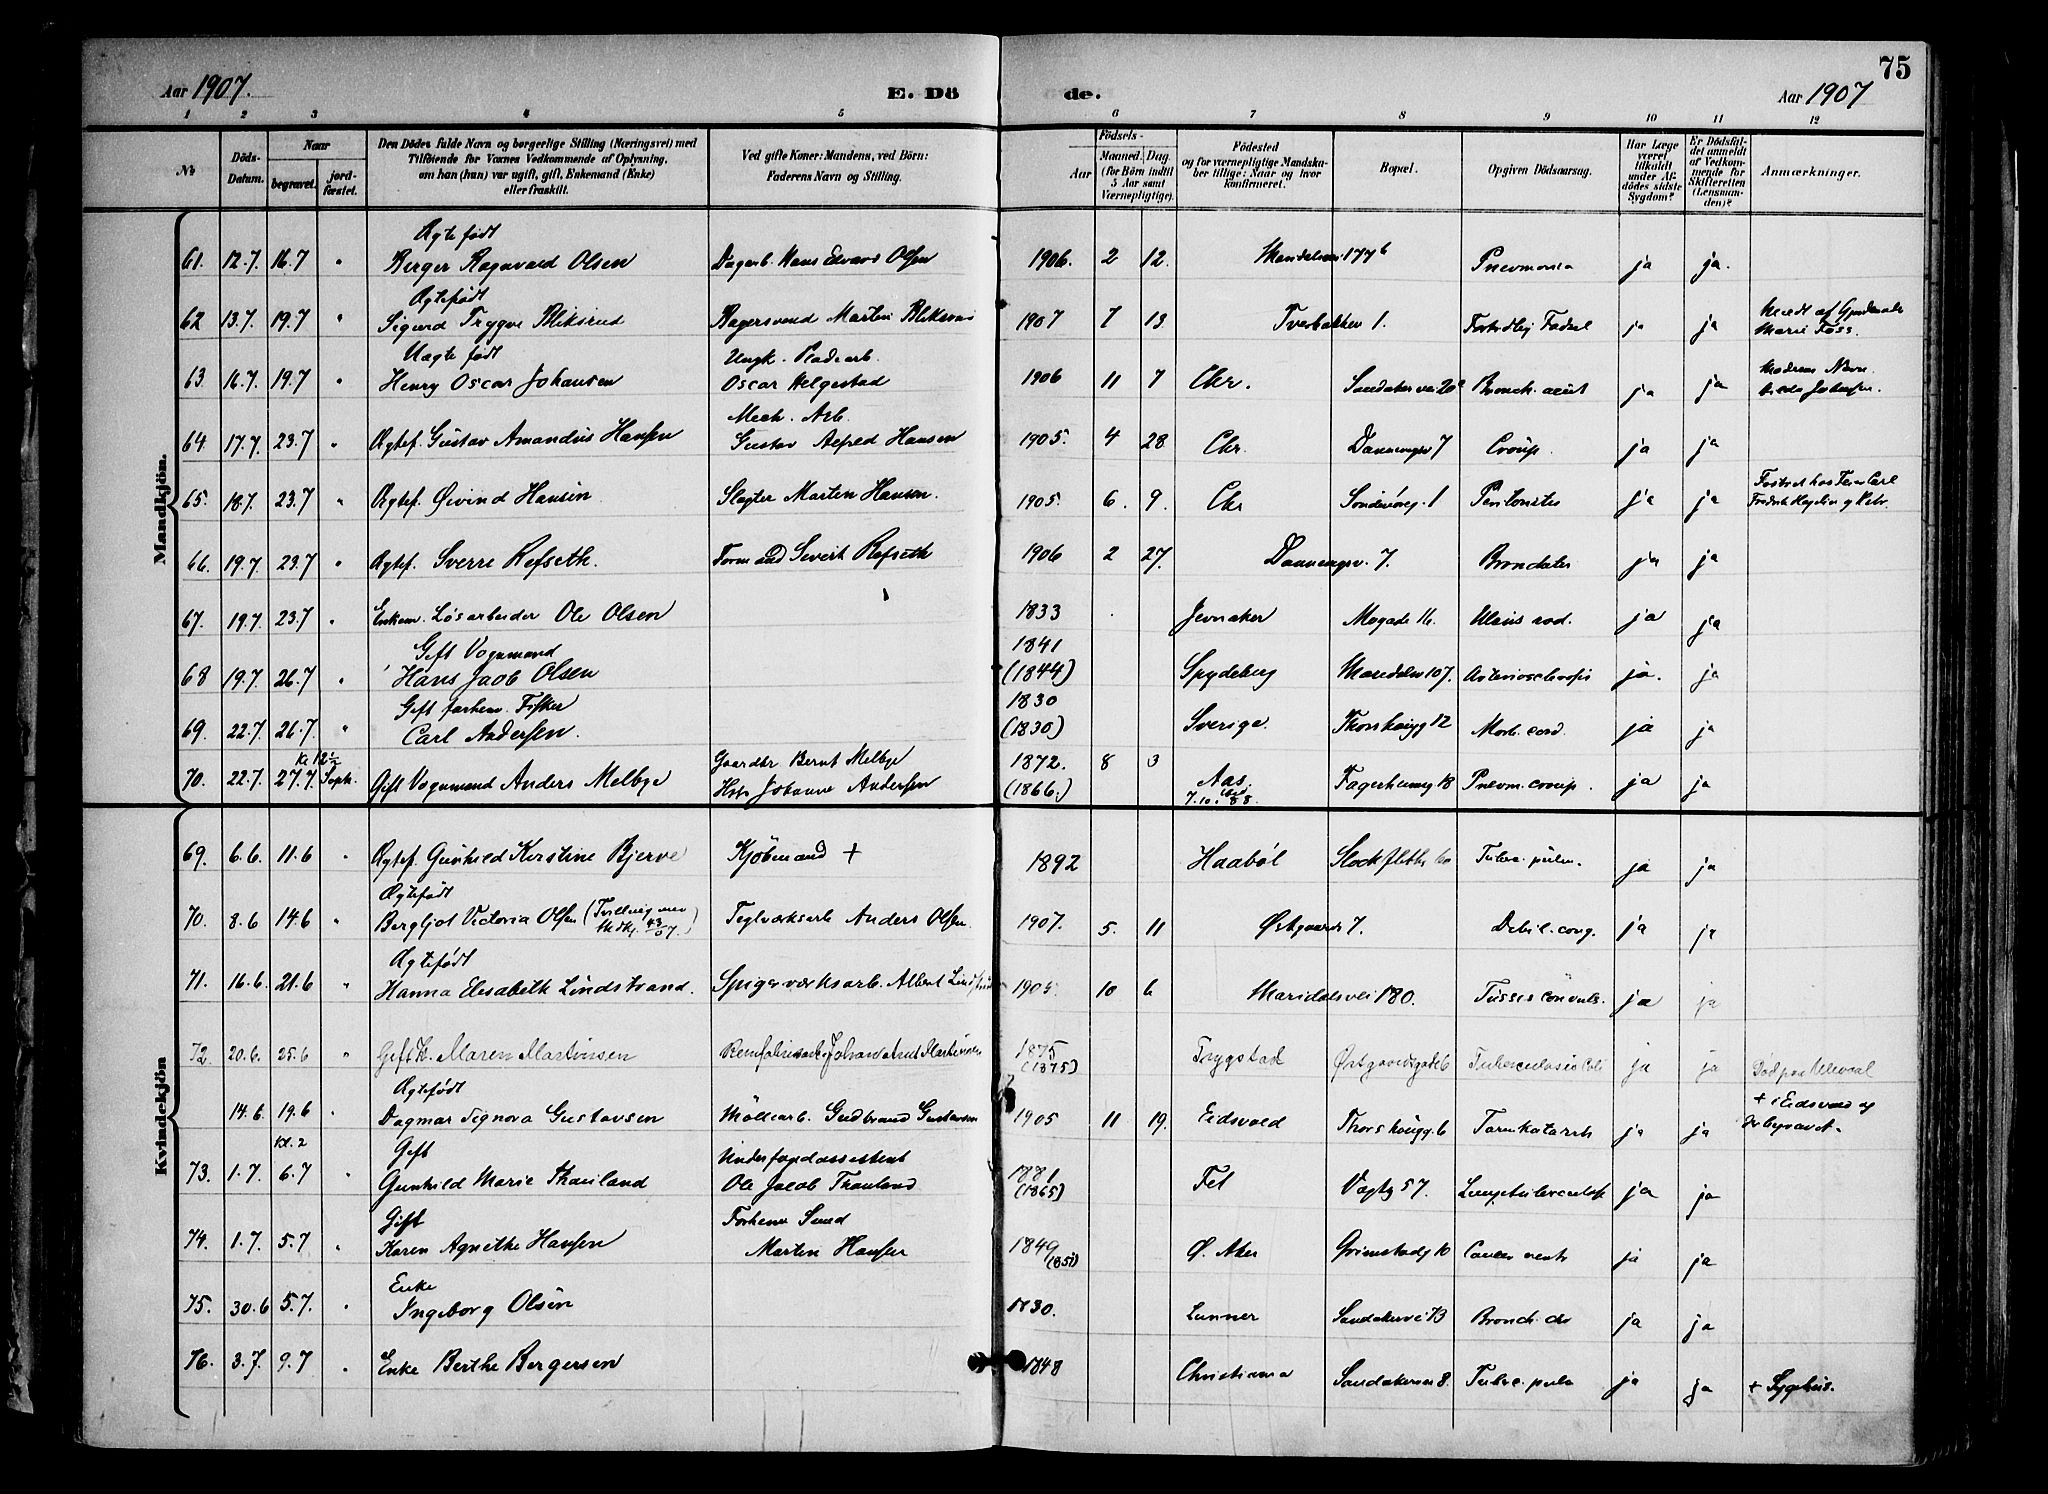 75
Aar 1907.
E. Dö
de.
Aar 1907
1 2 3 4 5 6 7 8 9 10 11 12
No
Döds-Datum.
Naar
begravet.
jord-fæstet.
Den Dödes fulde Navn og borgerlige Stilling (Næringsvei) med
Tilföiende for Voxnes Vedkommende af Oplysning,
om han (hun) var ugift, gift, Enkemand (Enke)
eller fraskilt.
Ved gifte Koner: Mandens, ved Börn:
Faderens Navn og Stilling.
Födsels-
Aar
Maaned. Dag.
(for Börn indtil
5 Aar samt
Værnepligtige).
Födested
og for værnepligtige Mandska-
ber tillige: Naar og hvor
konfirmeret.
Bopæl.
Opgiven Dödsaarsag.
Har Læge
været
tilkaldt
under Af-
dödes sidste
Sygdom?
Er Dödsfal-
det anmeldt
af Vedkom-
mende for
Skifteretten
(Lensman-
den)?
Anmærkninger.
Mandkjön.
Ægtefødt
61. 12.7. 16.7 " Birger Ragnvald Olsen Dagarb. Hans Edvard Olsen 1906. 2 12. 177b Pneumonia ja ja.
Ægtefødt
62 13.7. 19.7 " Sigurd Trygve Bliksrud Bagersvend Martin Bliksrud 1907 7 13 Tverbakken 1. Fortidlig Fødsel ja ja
Marie Foss.
Uægte født Ungk. Pladearb.
63. 16.7. 19.7 " Henry Oscar Johansen Oscar Helgestad 1906 11 7 Chr. Sandakervei 20 Bronch. acut ja ja Moderens Navn
Mech. Arb.
64. 17.7. 23.7 " Ægtef. Gustav Amandus Hansen Gustav Alfred Hansen 1905. 4 28 Chr. Dannevigsv 7 Croup. ja ja
65. 18.7. 23.7 " Ægtef. Øivind Hansen Slagter Martin Hansen. 1905. 6. 9. Chr Peritonitis ja ja
66. 19.7. 23.7 " Ægtef. Sverre Refseth. Formand Sivert Refseth 1906 2 27. Dannevigsv. 7. ja ja
67. 19.7. 23.7 " Enkem. Løsarbeider Ole Olsen 1833 Jevnaker Mogade 16. ja ja
Gift Vognmand 1841
68 19.7. 26.7 " Hans Jacob Olsen (1844) Spydeberg Maridalsv 107. ja. ja
Gift forhenv. Fisker 1830
69. 22.7. 26.7. " Carl Andersen. (1830) Sverige. Thorshaugg 12 Morb. cord. ja ja
Kl 12½ Gaardbr Bernt Melbye 1872. 8 3
70. 22.7. 27.7 Soph. Gift Vognmand Anders Melbye Johanne Andersen (1866.) Aas. Fagerheimg 18 Pneum. croup. ja ja
7.10. 88.
Kvindekjön
69. 6.6. 11.6 " Ægtef. Gunhild Kirstine Bjerve Kjøbmand + 1892 Haabøl Stockfleths Tuberc. pulm. ja ja
Ægtefødt
70. 8.6 14.6 " Bergljot Victoria Olsen (Tvilling med Mdkj. 43/07.) Teglværksarb Anders Olsen. 1907. 5. 11 Østgaards 7. Debil. cong. ja ja
Ægtefødt
71. 16.6. 21.6 " Hanna Elisabeth Lindstrand. Spigerværksarb. Albert 1905 10 6 Maridalsvei 180. Tussis convuls. ja ja
72. 20.6. 25.6 " Gift K. Maren Martinsen 1875 (1875) Trygstad Østgaardsgade 6 ja ja Død paa Ullevaal
Ægtefødt
14.6. 19.6 " Dagmar Signora Gustavsen Møllearb. Gudbrand Gustavsen 1905 11 19. Eidsvold Thorshaugg. 6 Tarmkatarrh ja ja + i Eidsvold og
der begravet.
Kl. 2 Gift Underfogdassistent 1881
73. 1.7. 6.7 " Gunhild Marie Thauland Ole Jacob Thauland (1865) Fet Vogtg 57. Lungetuberculose ja ja
Gift Forhenv Smed
74. 1.7. 5.7 " Karen Agnethe Hansen Martin Hansen 1849 (1851) Ø. Aker Grimstadg 10 Cancer ventr ja ja
Enke
75. 30.6 5.7. " Ingeborg Olsen 1830. Lunner Sandakervei 73 Bronch. chr ja ja
76. 3.7. 9.7 " Enke Berthe Bergersen 1848 Christiania Sandakerveien 8. Tuberc. pulm ja ja + Sygehus.